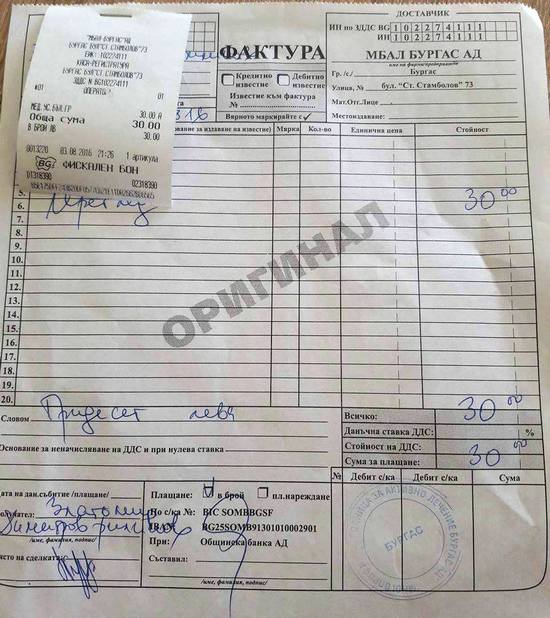 "МБАЛ-БУРГАС"АД
БУРГАС БУЛ"СТ.СТАМБОЛОВ"73
ЕИК: 102274111
КАСА-РЕГИСТРАТУРА
БУРГАС БУЛ"СТ.СТАМБОЛОВ"73
ЗДДС N BG102274111
#01 ОПЕРАТОР 01
МЕД.УС.БЪЛГР 30.00 А
Обща сума 30.00
В БРОЙ ЛВ 30.00
0013220 03.08.2016 21:26 1 артикула
BG ФИСКАЛЕН БОН
01318390 02318390
ДОСТАВЧИК
ИН по ЗДДС BG 102274111
ИН 102274111
ФАКТУРА
МБАЛ БУРГАС АД
/име на фирма/предприятие/
Кредитно известие
Дебитно известие
Гр./с./ Бургас
Улица, № бул. "Ст. Стамболов" 73
Известие към фактура №
Мат.Отг.Лице
Вярното маркирайте с ✓
Местоиздаване:
основание за издаване на известие/ Марка Кол-во Единична цена Стойност
5.
6. Преглед 30 00
7.
8.
9.
10.
11.
12.
13.
14.
15.
16.
17.
18.
19.
20.
ОРИГИНАЛ
Словом Тридесет лева
Всичко: 30 00
Данъчна ставка ДДС: %
Основание за неначисляване на ДДС и при нулева ставка
Стойност на ДДС:
Сума за плащане: 30 00
№ Дебит с/ка Дебит с/ка Сума
Дата на дан.събитие /плащане/
Плащане: в брой пл.нареждане
Получател: Златомир
По с/ка №: BIC SOMBBGSF
Димитров
IBAN: BG25SOMB91301010002901
/име, фамилия/
При: Общинска банка АД
място на сделката:
/име, фамилия, подпис/
/име, фамилия, подпис/
БОЛНИЦА ЗА АКТИВНО ЛЕЧЕНИЕ БУРГАС АД
БУРГАС